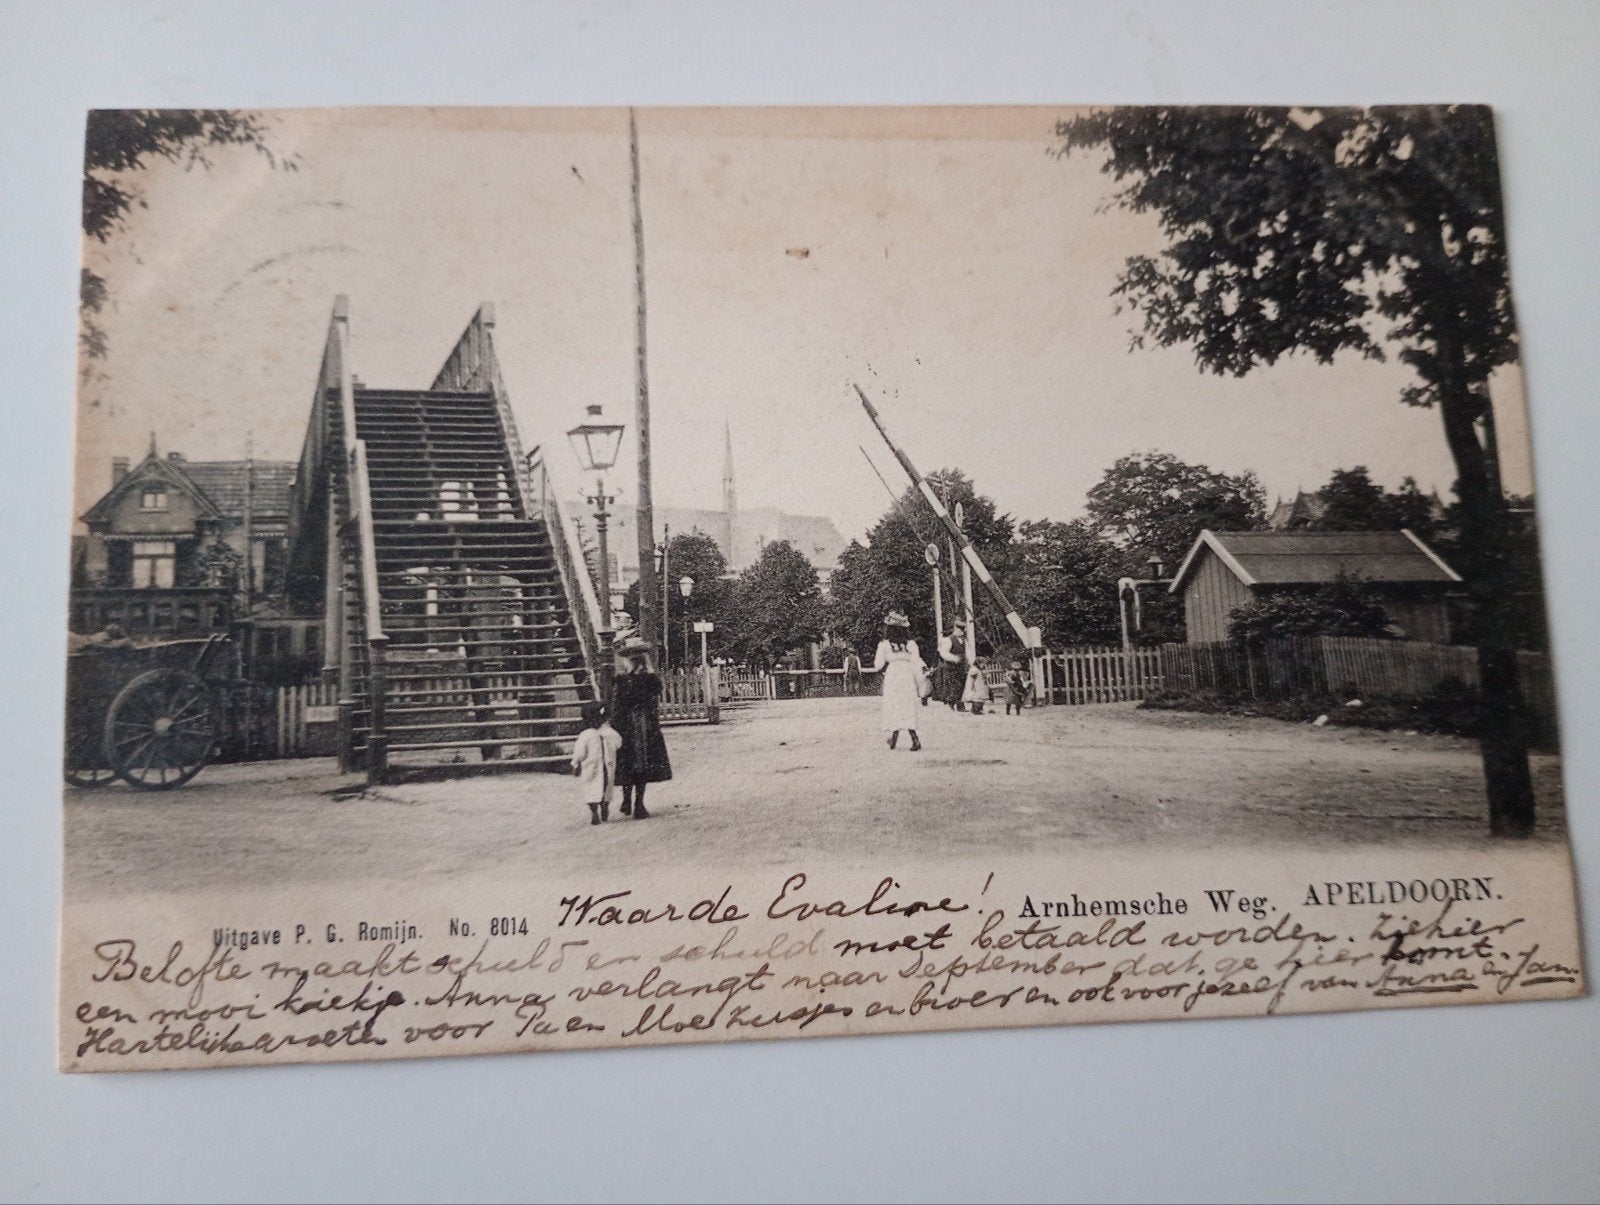 Waarde Evaline! Arnhemsche Weg. APELDOORN.
Uitgave P. G. Romijn. No. 8014
Belofte maakt schuld en schuld moet betaald worden. Ziehier
een mooi kiekje. Anna verlangt naar September dat ge hier komt.
Hartelijke groeten voor Pa en Moe Zusjes en broer en ook voor jezelf van Anna en Jan